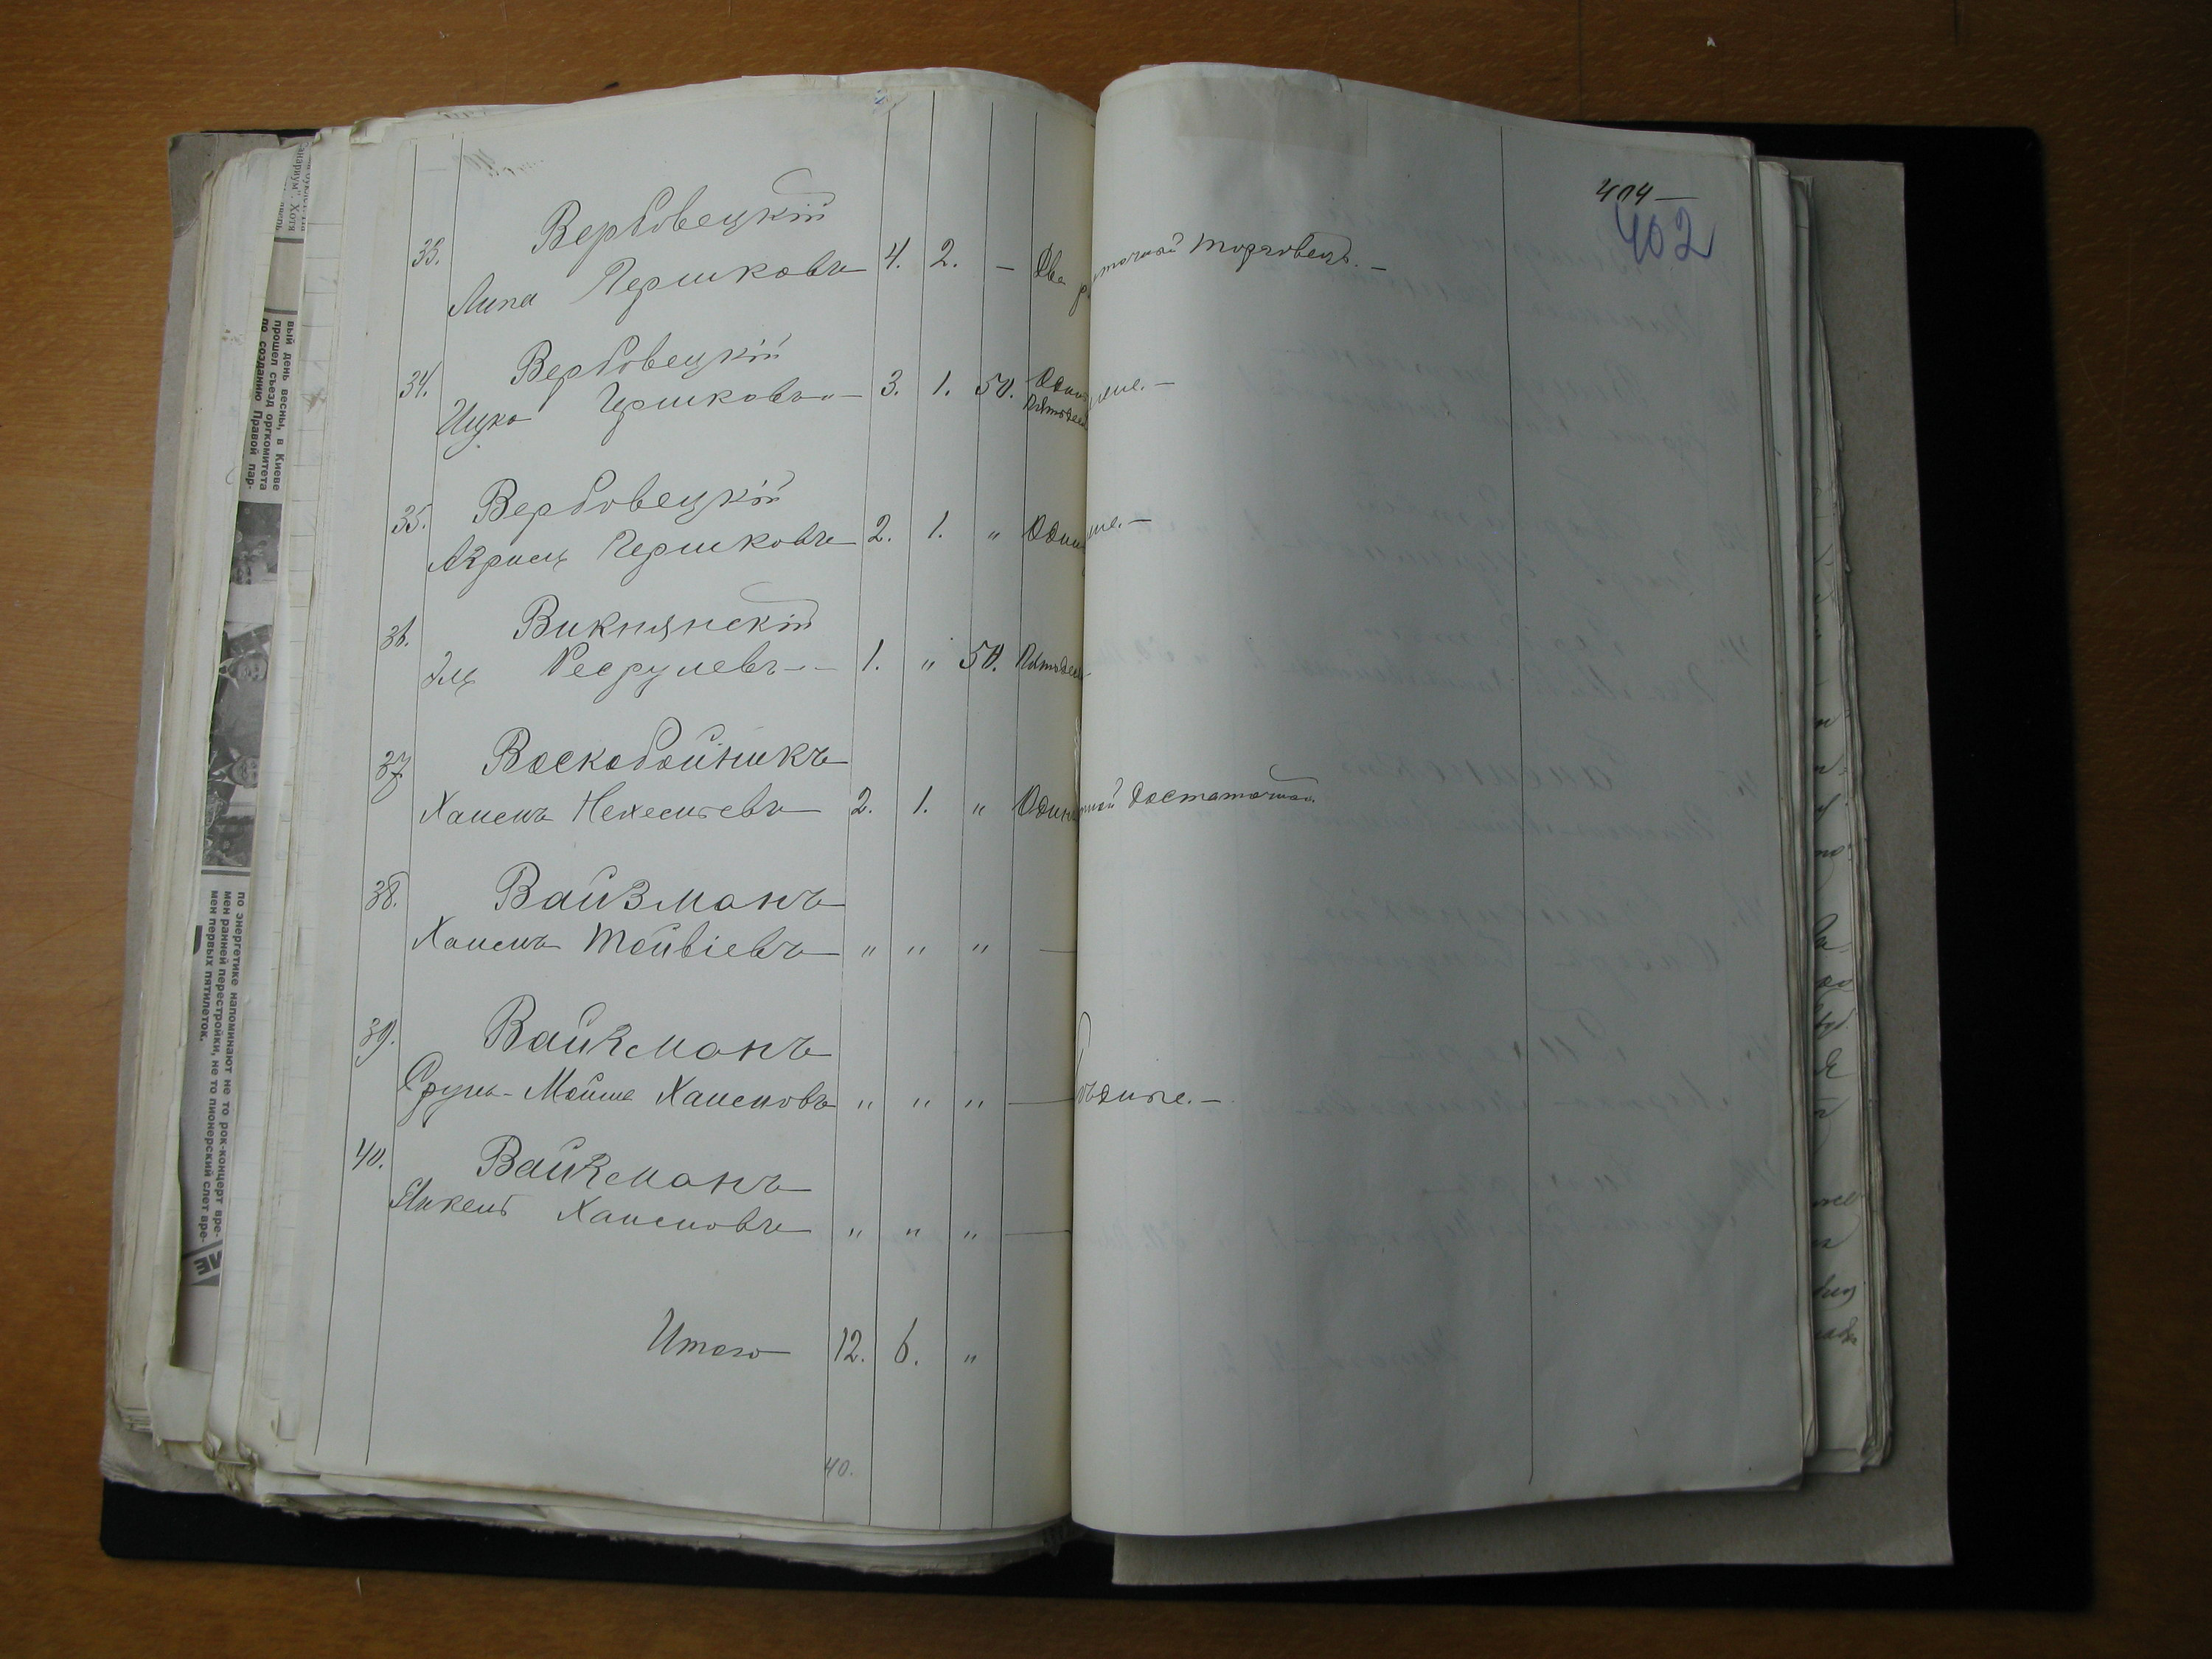 404—
402
33. Вербовецкій
Липа Гершковъ 4. 2. — Два р точный торговецъ. —
34. Вербовецкій
Ицко Гершковъ 3. 1. 50. Один
Пятьдес
35. Вербовецкій
Гершковъ 2. 1. " Один
36. Викнянскій
1. " 50. Пятьдес
37. Воскобойникъ
Хаимъ 2. 1. " Один достаточной
38. Вайзманъ
Хаимъ Тойвіевъ " " " —
39. Вайзманъ
Сруль-Мойше Хаимовъ " " " — бѣдные. —
40. Вайзманъ
Янкель Хаимовъ " " " —
Итого 12. 6. "
40.
вый день весны, в Киеве
прошел съезд оргкомитета
по созданию Правой пар-
по энергетике напоминают не то рок-концерт вре-
мен ранней перестройки, не то пионерский слет вре-
мен первых пятилеток.